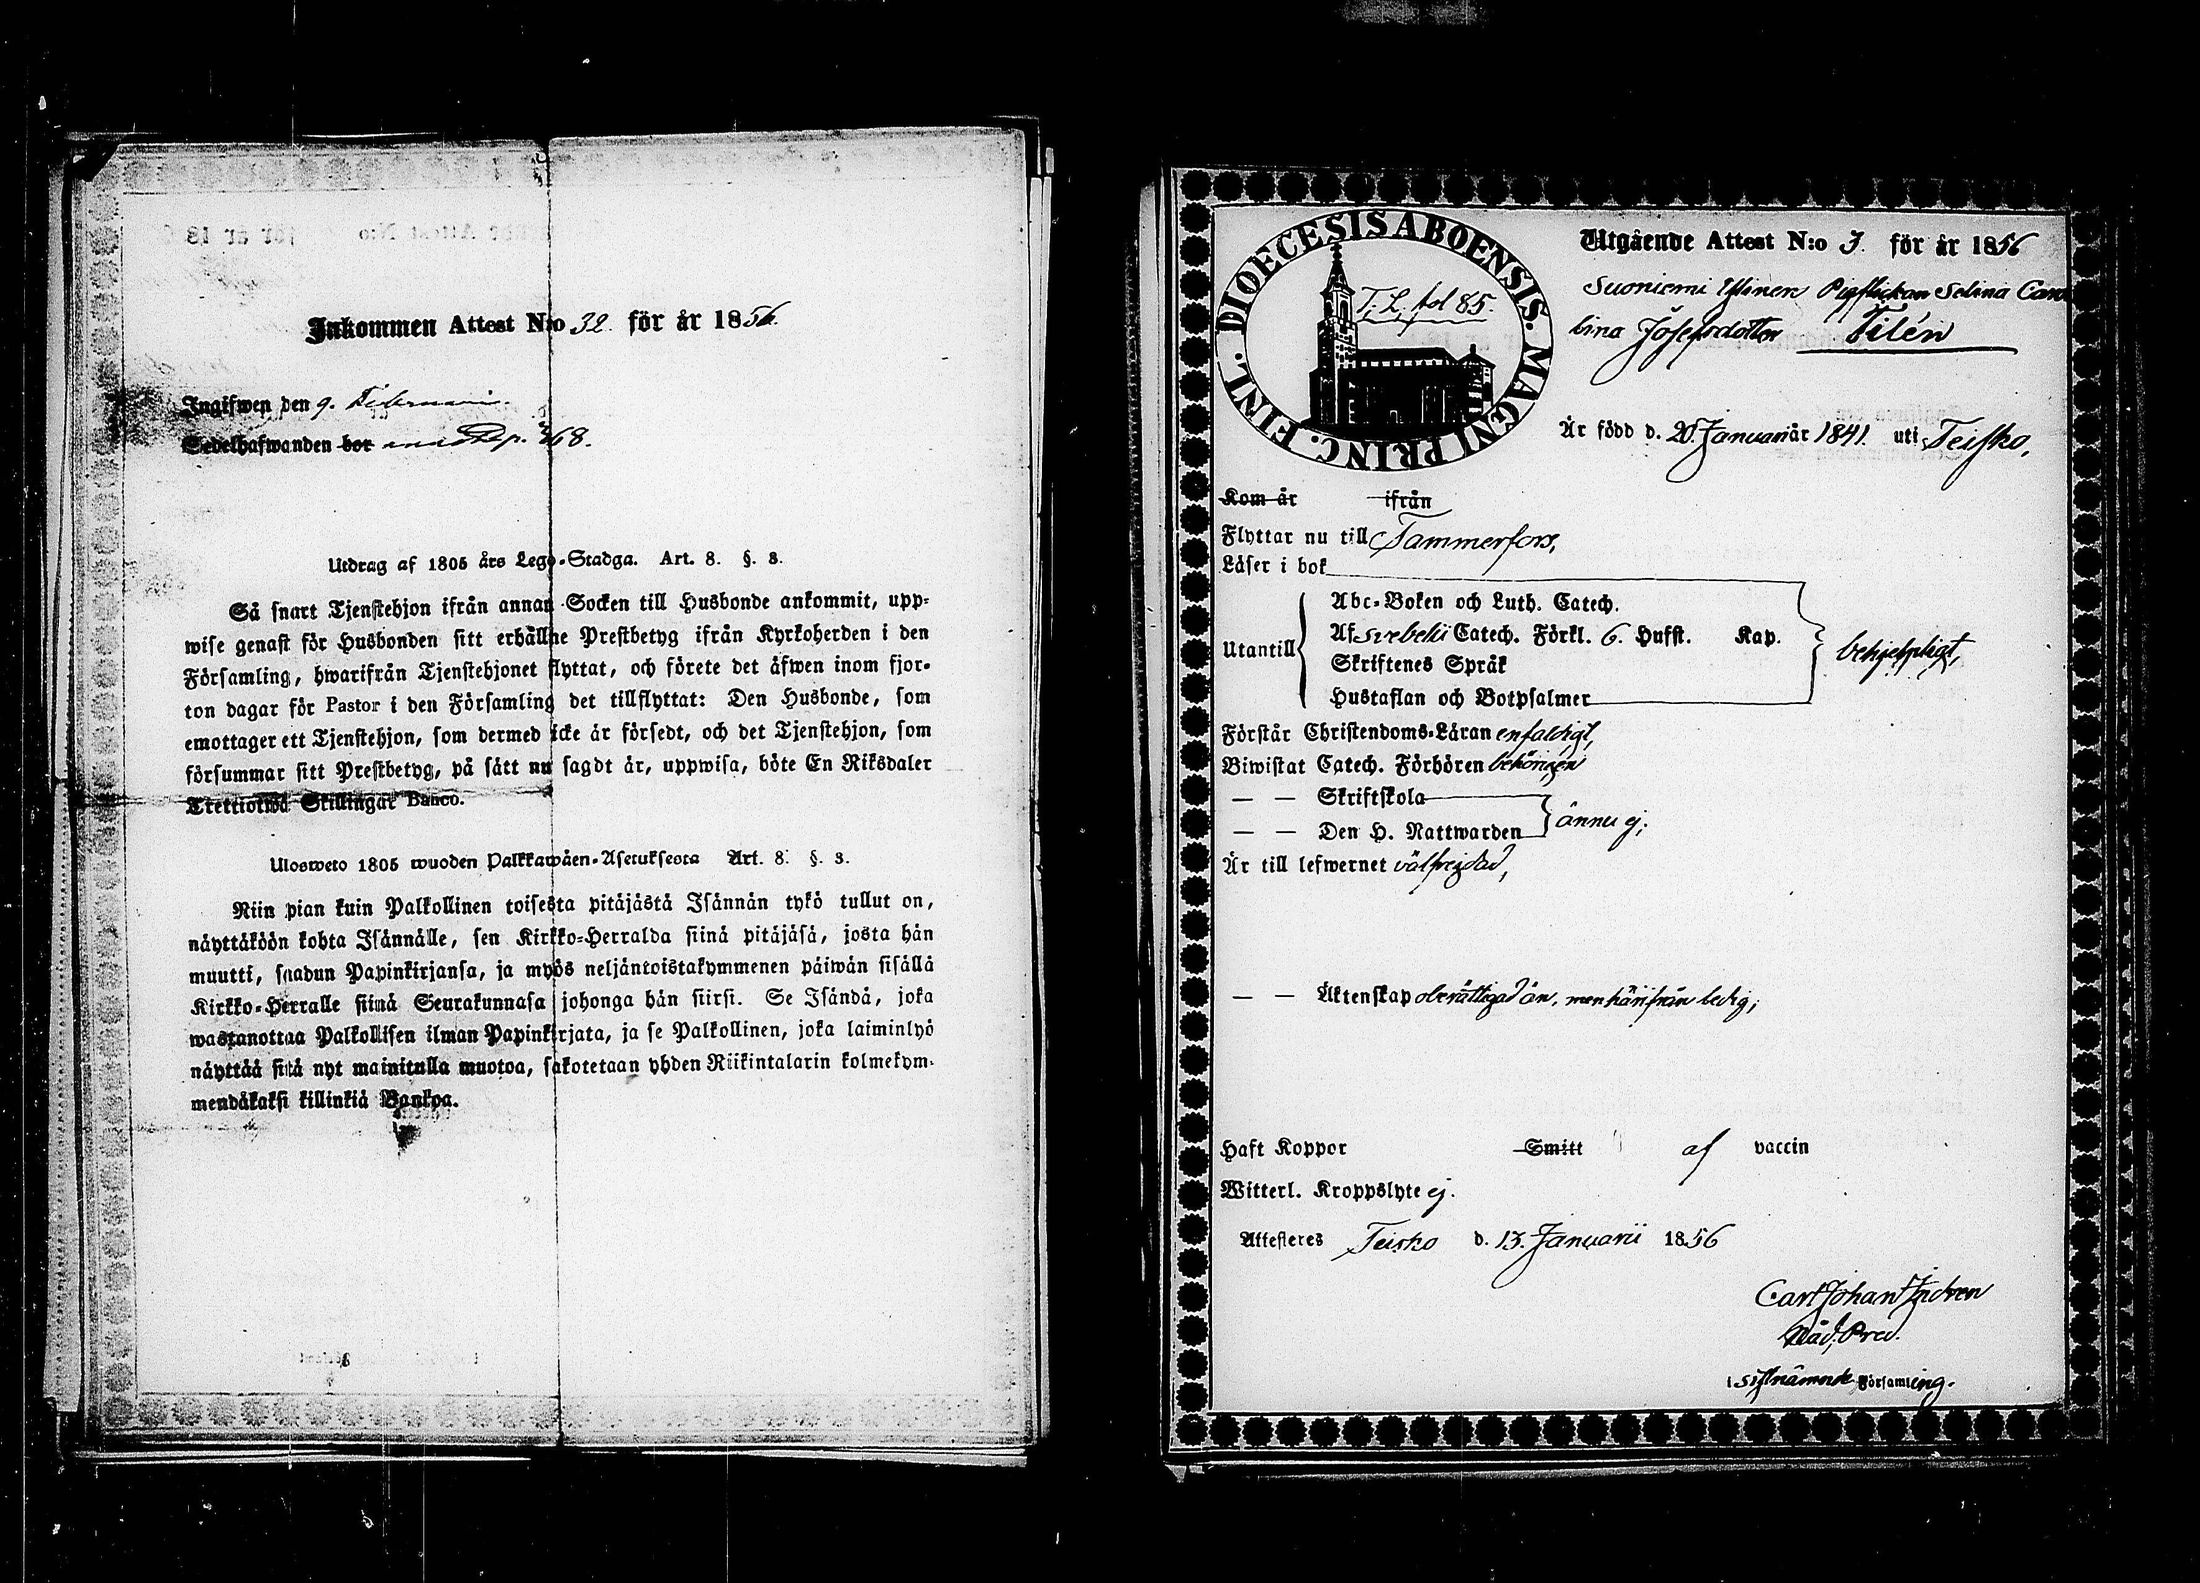 Inkommen Attest N:o 32. för år 1856.
Ingifwen den 9. Februarii.
Sedelhafwanden bor
Utdrag af 1805 års Lego-Stadga. Art. 8. §. 3.
Så snart Tjenstehjon ifrån annan Socken till Husbonde ankommit, upp-
wise genast för Husbonden sitt erhållne Prestbetyg ifrån Kyrkoherden i den
Församling, hwarifrån Tjenstehjonet flyttat, och förete det äfwen inom fjor-
ton dagar för Pastor i den Församling det tillflyttat: Den Husbonde, som
emottager ett Tjenstehjon, som dermed icke är försedt, och det Tjenstehjon, som
försummar sitt Prestbetyg, på sätt nu sagdt är, uppwisa, böte En Riksdaler
Trettiotwå Skillingar Banco.
Ulosweto 1805 wuoden Palkkawäen-Asetuksesta Art. 8. §. 3.
Niin pian kuin Palkollinen toisesta pitäjästä Isännän tykö tullut on,
näyttäköön kohta Isännälle, sen Kirkko-Herralda siinä pitäjäsä, josta hän
muutti, saadun Papinkirjansa, ja myös neljäntoistakymmenen päiwän sisällä
Kirkko-Herralle siinä Seurakunnasa johonga hän siirsi. Se Isändä, joka
wastanottaa Palkollisen ilman Papinkirjata, ja se Palkollinen, joka laiminlyö
näyttää sitä nyt mainitulla muotoa, sakotetaan yhden Riikintalarin kolmekym-
mendäkaksi killinkiä Bankoa.
DIOECESIS ABOENSIS. MAGNI PRINC. FINL.
T. L. fol 85.
Utgående Attest N:o 3. för år 1856
Suoniemi Pigflickan Selina Caro
lina Josefsdotter Tilén
Är född d. 20. Januarii år 1841. uti Teisko,
Kom år ifrån
Flyttar nu till Tammerfors,
Läser i bok
Utantill
Abc-Boken och Luth. Catech.
Af Svebelii Catech. Förkl. 6. Hufst. Kap.
Skriftenes Språk
Hustaflan och Botpsalmer
behjelpligt,
Förstår Christendoms-Läran enfaldigt,
Biwistat Catech. Förhören behörigen
— — Skriftskola
— — Den H. Nattwarden
ännu ej;
Är till lefwernet välfrejdad,
— — Äktenskap oberättigad än, men härifrån ledig;
Haft Koppor Smitt af vaccin
Witterl. Kroppslyte ej.
Attesteres Teisko d. 13. Januarii 1856
Carl Johan Indren
Nåd. Pred.
i sistnämnde Församling.